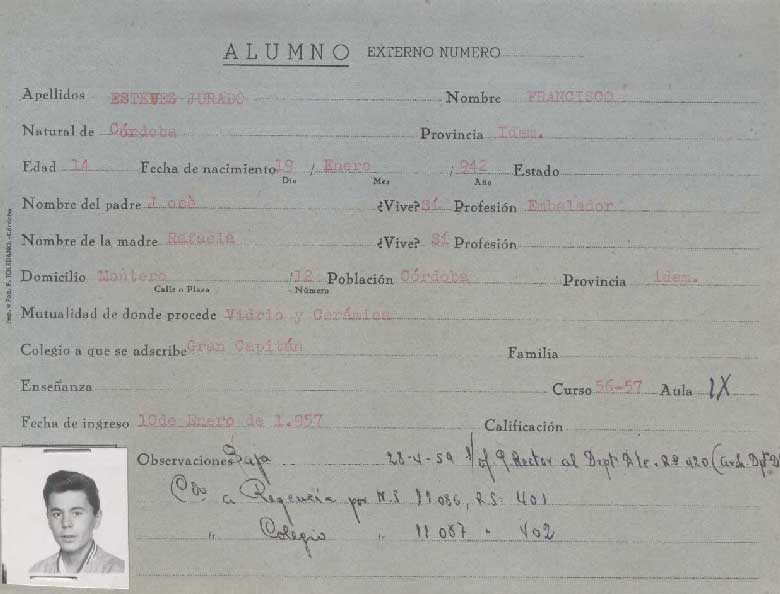 ALUMNO EXTERNO NUMERO
Apellidos ESTEVEZ JURADO Nombre FRANCISCO
Natural de Córdoba Provincia Idem.
Edad 14 Fecha de nacimiento 19 / Enero / 942 Estado
Dia Mes Año
Nombre del padre José ¿Vive? Sí Profesión Embalador
Nombre de la madre Rafaela ¿Vive? Sí Profesión
Domicilio Montero / 12 Población Córdoba Provincia idem.
Calle o Plaza Número
Mutualidad de donde procede Vidrio y Cerámica
Colegio a que se adscribe Gran Capitán Familia
Enseñanza Curso 56-57 Aula IX
Fecha de ingreso 10 de Enero de 1.957 Calificación
Observaciones Baja 28-4-59 s/of. Rector al Dept. 920
a Regencia por N.S. 11086, R.S. 401
" Colegio " 11087 " 402